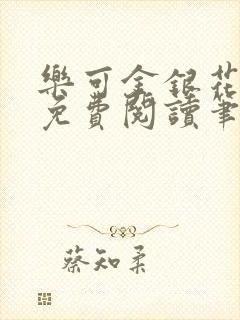 樂可金銀花
免費閱讀筆
蔡知柔